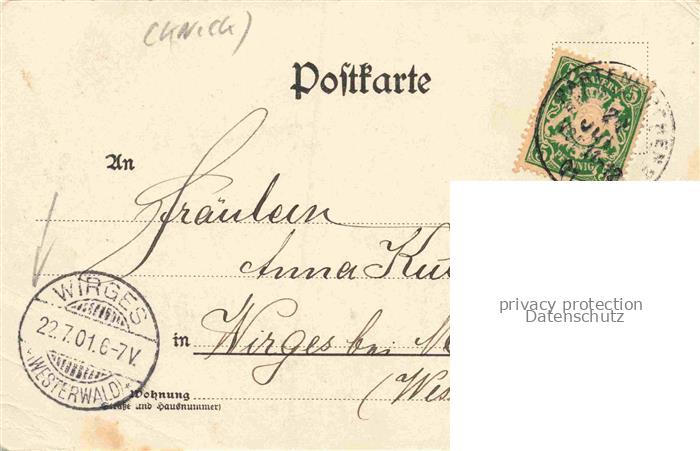 (Knick)
Postkarte
BAYERN
5
PFENNIG
An
Fräulein
Anna
WIRGES
22.7.01.6-7V.
(WESTERWALD)
in Wirges bei M
(Wes
Wohnung
(Straße und Hausnummer)
privacy protection
Datenschutz